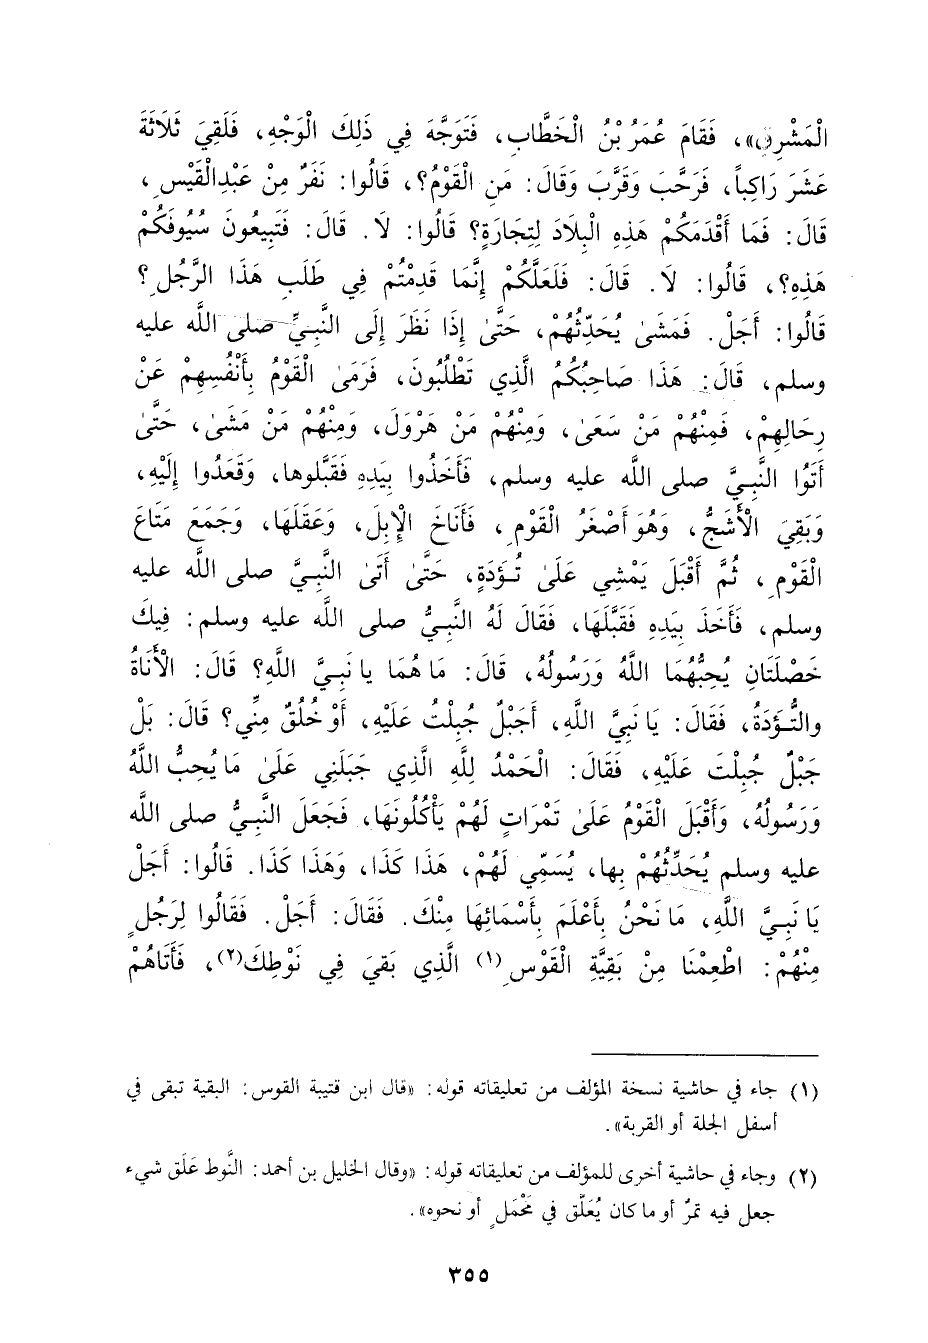 الْمَشْرِقِ»، فَقَامَ عُمَرُ بْنُ الْخَطَّابِ، فَتَوَجَّهَ فِي ذَلِكَ الْوَجْهِ، فَلَقِيَ ثَلَاثَةَ
عَشَرَ رَاكِباً، فَرَحَّبَ وَقَرَّبَ وَقَالَ: مَنِ الْقَوْمُ؟، قَالُوا: نَفَرٌ مِنْ عَبْدِالْقَيْسِ،
قَالَ: فَمَا أَقْدَمَكُمْ هَذِهِ الْبِلَادَ لِتِجَارَةٍ؟ قَالُوا: لَا. قَالَ: فَتَبِيعُونَ سُيُوفَكُمْ
هَذِهِ؟، قَالُوا: لَا. قَالَ: فَلَعَلَّكُمْ إِنَّمَا قَدِمْتُمْ فِي طَلَبِ هَذَا الرَّجُلِ؟
قَالُوا: أَجَلْ. فَمَشَىٰ يُحَدِّثُهُمْ، حَتَّىٰ إِذَا نَظَرَ إِلَى النَّبِيِّ صلى الله عليه
وسلم، قَالَ: هَذَا صَاحِبُكُمُ الَّذِي تَطْلُبُونَ، فَرَمَىٰ الْقَوْمُ بِأَنْفُسِهِمْ عَنْ
رِحَالِهِمْ، فَمِنْهُمْ مَنْ سَعَىٰ، وَمِنْهُمْ مَنْ هَرْوَلَ، وَمِنْهُمْ مَنْ مَشَىٰ، حَتَّىٰ
أَتَوُا النَّبِيَّ صلى الله عليه وسلم، فَأَخَذُوا بِيَدِهِ فَقَبَّلُوها، وَقَعَدُوا إِلَيْهِ،
وَبَقِيَ الْأَشَجُّ، وَهُوَ أَصْغَرُ الْقَوْمِ، فَأَنَاخَ الْإِبِلَ، وَعَقَلَهَا، وَجَمَعَ مَتَاعَ
الْقَوْمِ، ثُمَّ أَقْبَلَ يَمْشِي عَلَىٰ تُؤَدَةٍ، حَتَّىٰ أَتَىٰ النَّبِيَّ صلى الله عليه
وسلم، فَأَخَذَ بِيَدِهِ فَقَبَّلَهَا، فَقَالَ لَهُ النَّبِيُّ صلى الله عليه وسلم: فِيكَ
خَصْلَتَانِ يُحِبُّهُمَا اللَّهُ وَرَسُولُهُ، قَالَ: مَا هُمَا يا نَبِيَّ اللَّهِ؟ قَالَ: الْأَنَاةُ
والتُّؤَدَةُ، فَقَالَ: يَا نَبِيَّ اللَّهِ، أَجَبْلٌ جُبِلْتُ عَلَيْهِ، أَوْ خُلُقٌ مِنِّي؟ قَالَ: بَلْ
جَبْلٌ جُبِلْتَ عَلَيْهِ، فَقَالَ: الْحَمْدُ لِلَّهِ الَّذِي جَبَلَنِي عَلَىٰ مَا يُحِبُّ اللَّهُ
وَرَسُولُهُ، وَأَقْبَلَ الْقَوْمُ عَلَىٰ تَمَرَاتٍ لَهُمْ يَأْكُلُونَهَا، فَجَعَلَ النَّبِيُّ صلى الله
عليه وسلم يُحَدِّثُهُمْ بِها، يُسَمِّي لَهُمْ، هَذَا كَذَا، وَهَذَا كَذَا. قَالُوا: أَجَلْ
يَا نَبِيَّ اللَّهِ، مَا نَحْنُ بِأَعْلَمَ بِأَسْمَائِهَا مِنْكَ. فَقَالَ: أَجَلْ. فَقَالُوا لِرَجُلٍ
مِنْهُمْ: اطْعِمْنَا مِنْ بَقِيَّةِ الْقَوْسِ(١) الَّذِي بَقِيَ فِي نَوْطِكَ(٢)، فَأَتَاهُمْ
(١) جاء في حاشية نسخة المؤلف من تعليقاته قوله: «قال ابن قتيبة القوس: البقية تبقى في
أسفل الجلة أو القربة».
(٢) وجاء في حاشية أخرى للمؤلف من تعليقاته قوله: «وقال الخليل بن أحمد: النَّوط عَلَق شيء
جعل فيه تمرٌ أو ما كان يُعَلَّق في مَحْمَلٍ أو نحوه».
٣٥٥